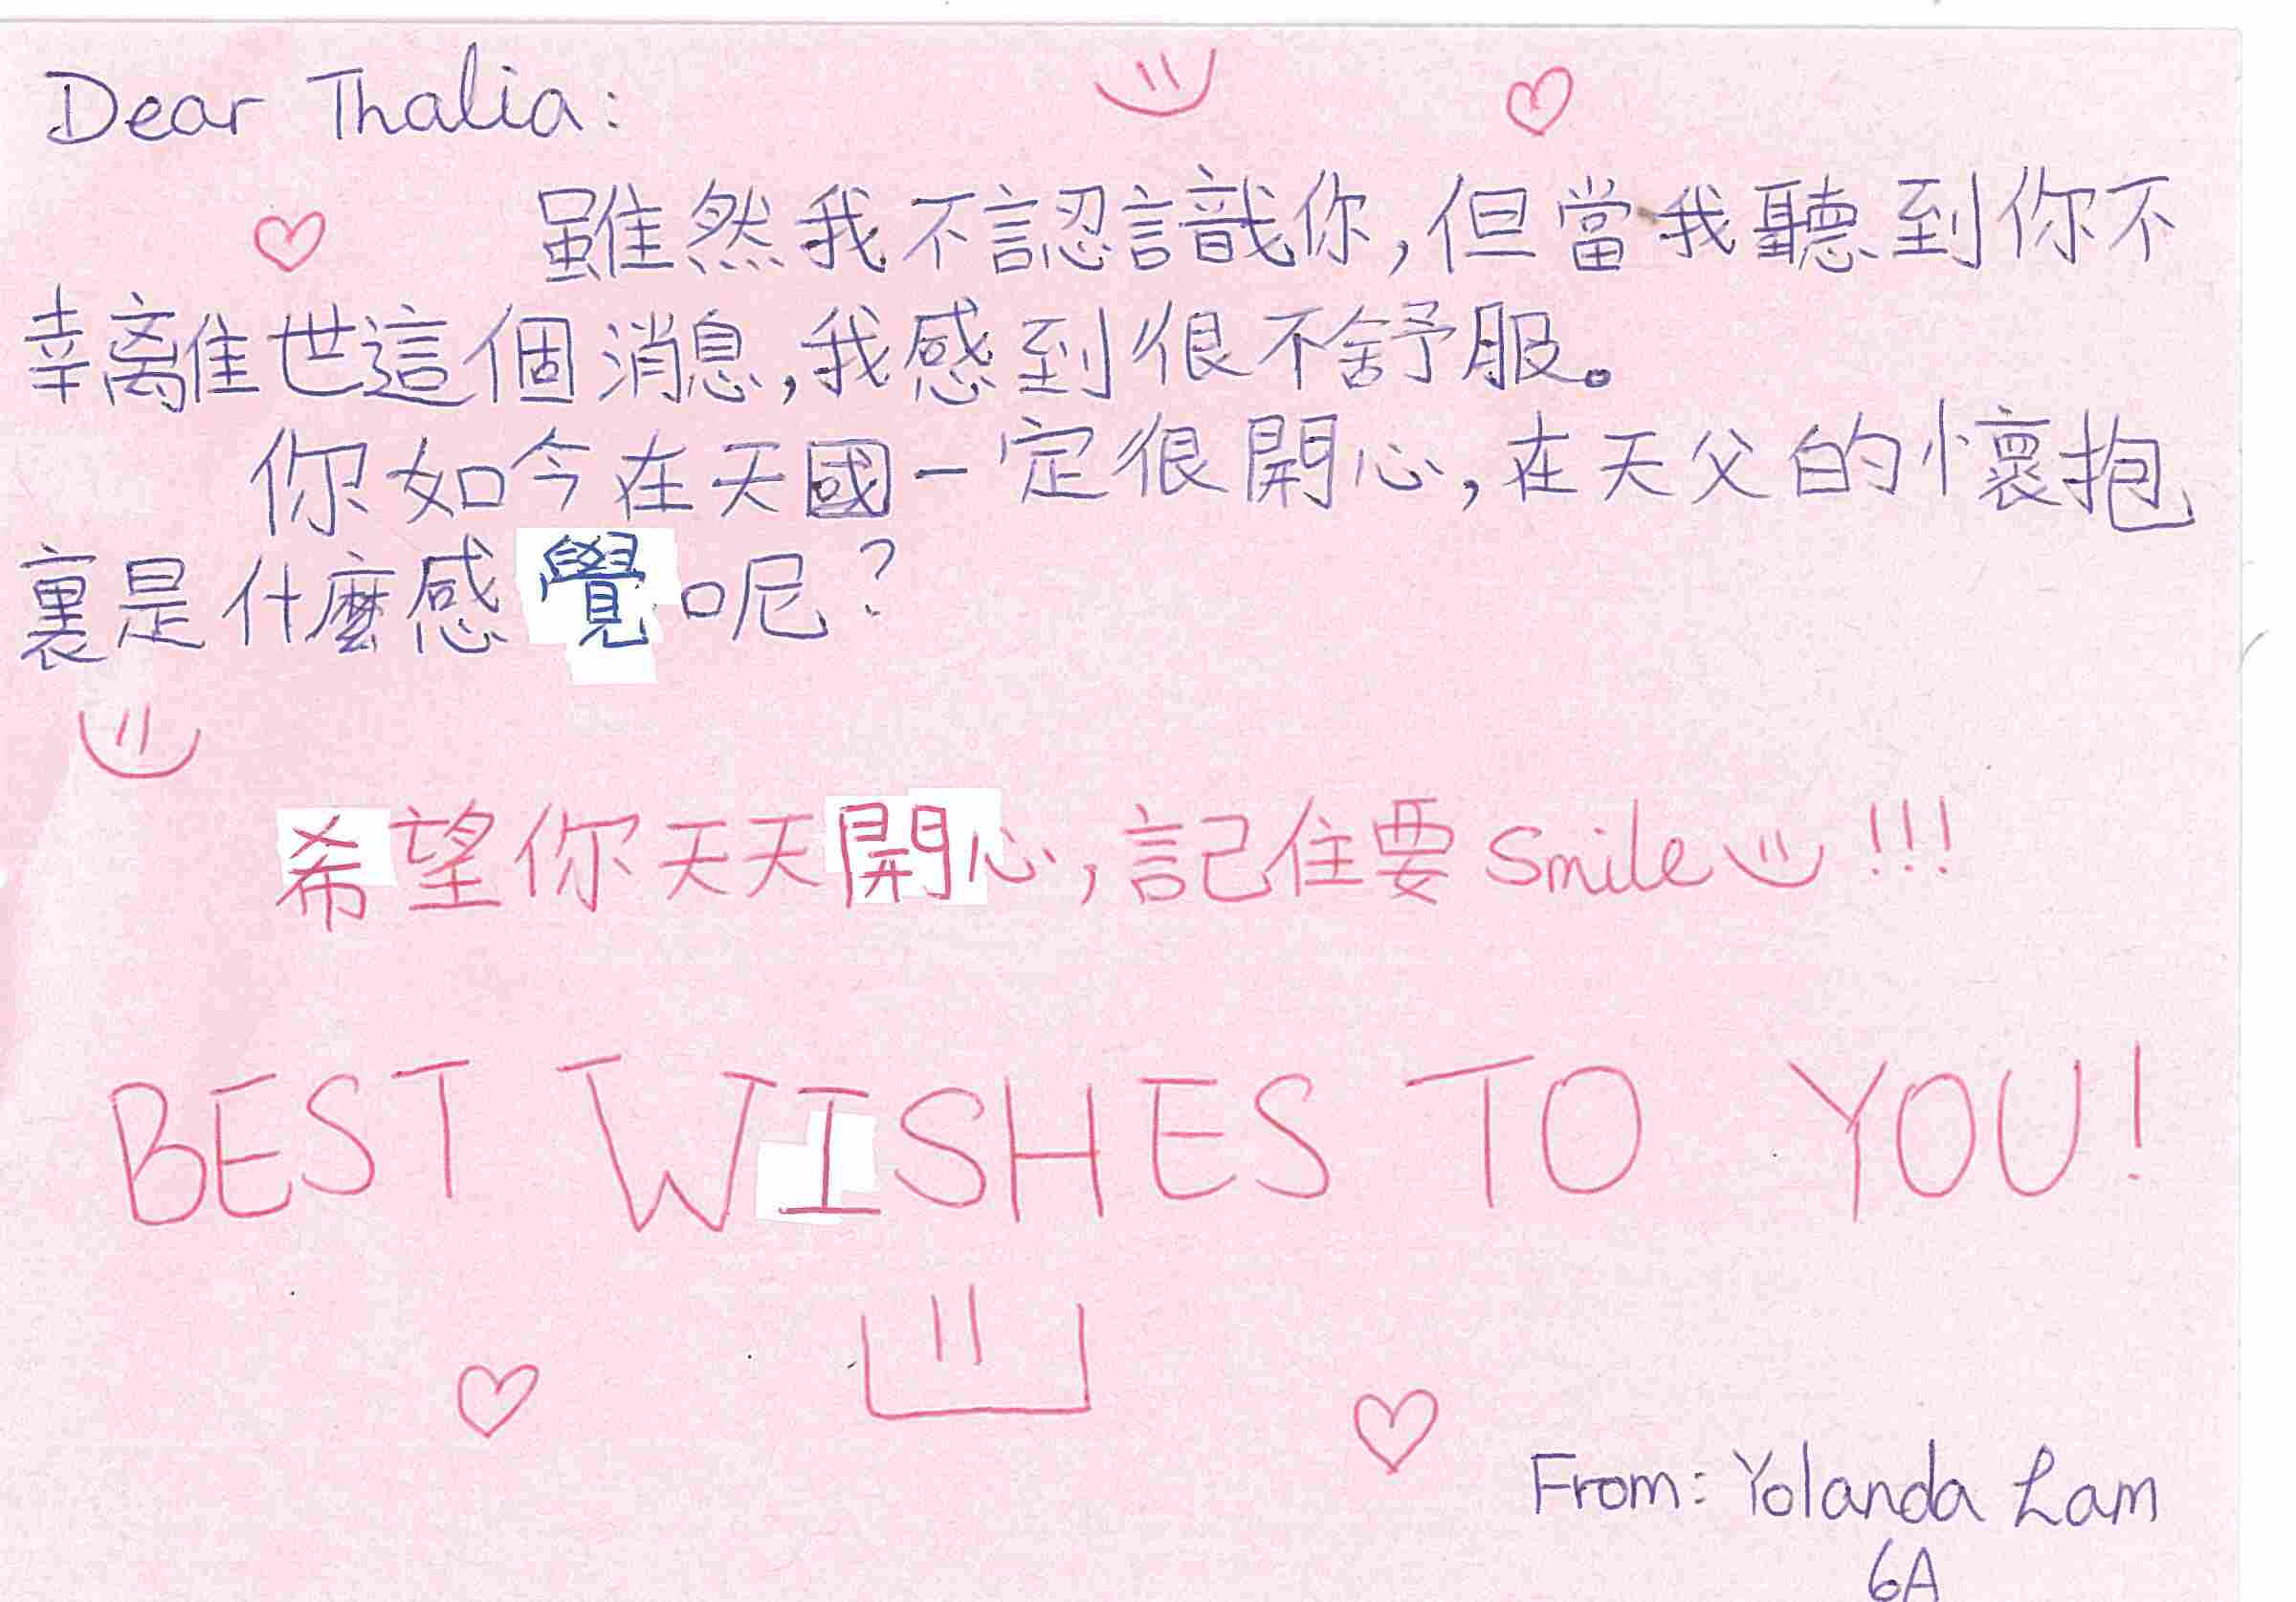 Dear Thalia:
雖然我不認識你,但當我聽到你不
幸離世這個消息,我感到很不舒服。
你如今在天國一定很開心,在天父的懷抱
裏是什麼感覺呢?
希望你天天開心,記住要Smile!!!
BEST WISHES TO YOU!
From: Yolanda Lam
6A